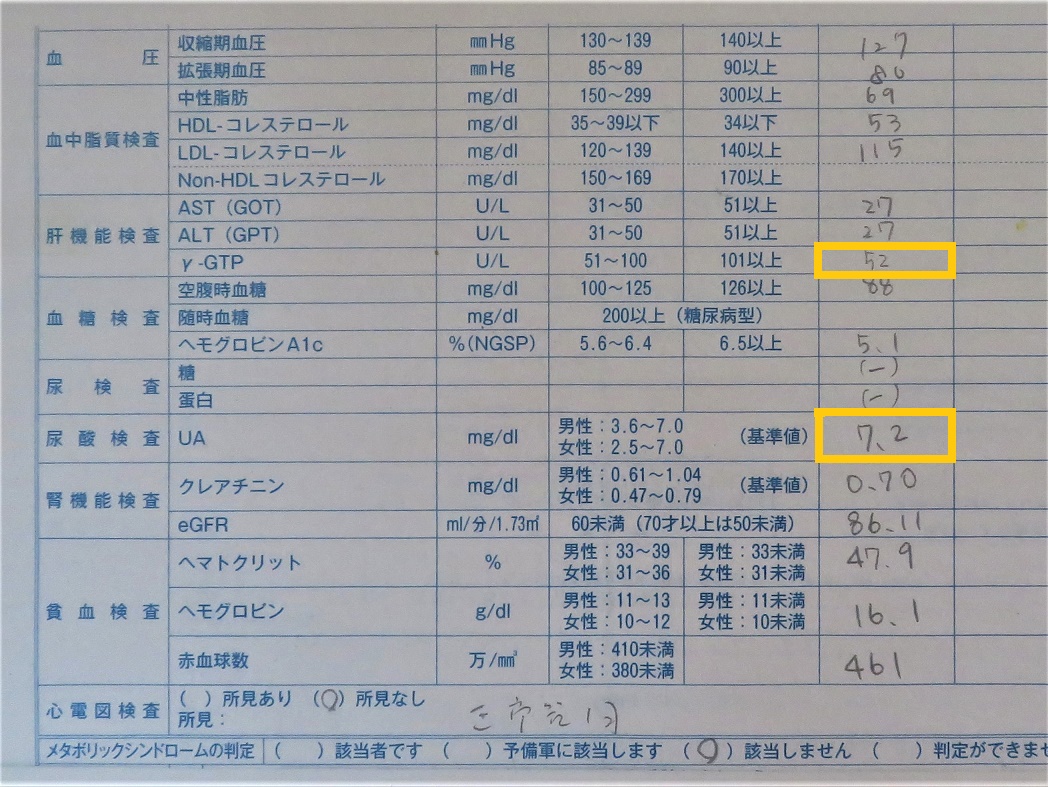 血圧 収縮期血圧 mmHg 130～139 140以上 127
拡張期血圧 mmHg 85～89 90以上 80
血中脂質検査 中性脂肪 mg/dl 150～299 300以上 69
HDL-コレステロール mg/dl 35～39以下 34以下 53
LDL-コレステロール mg/dl 120～139 140以上 115
Non-HDLコレステロール mg/dl 150～169 170以上
肝機能検査 AST（GOT） U/L 31～50 51以上 27
ALT（GPT） U/L 31～50 51以上 27
γ-GTP U/L 51～100 101以上 52
血糖検査 空腹時血糖 mg/dl 100～125 126以上 88
随時血糖 mg/dl 200以上（糖尿病型）
ヘモグロビンA1c %(NGSP) 5.6～6.4 6.5以上 5.1
尿検査 糖 (-)
蛋白 (-)
尿酸検査 UA mg/dl 男性：3.6～7.0 女性：2.5～7.0 （基準値） 7.2
腎機能検査 クレアチニン mg/dl 男性：0.61～1.04 女性：0.47～0.79 （基準値） 0.70
eGFR ml/分/1.73㎡ 60未満（70才以上は50未満） 86.11
貧血検査 ヘマトクリット % 男性：33～39 女性：31～36 男性：33未満 女性：31未満 47.9
ヘモグロビン g/dl 男性：11～13 女性：10～12 男性：11未満 女性：10未満 16.1
赤血球数 万/㎣ 男性：410未満 女性：380未満 461
心電図検査 （ ）所見あり （○）所見なし
所見：
メタボリックシンドロームの判定 （ ）該当者です （ ）予備軍に該当します （○）該当しません （ ）判定ができませ